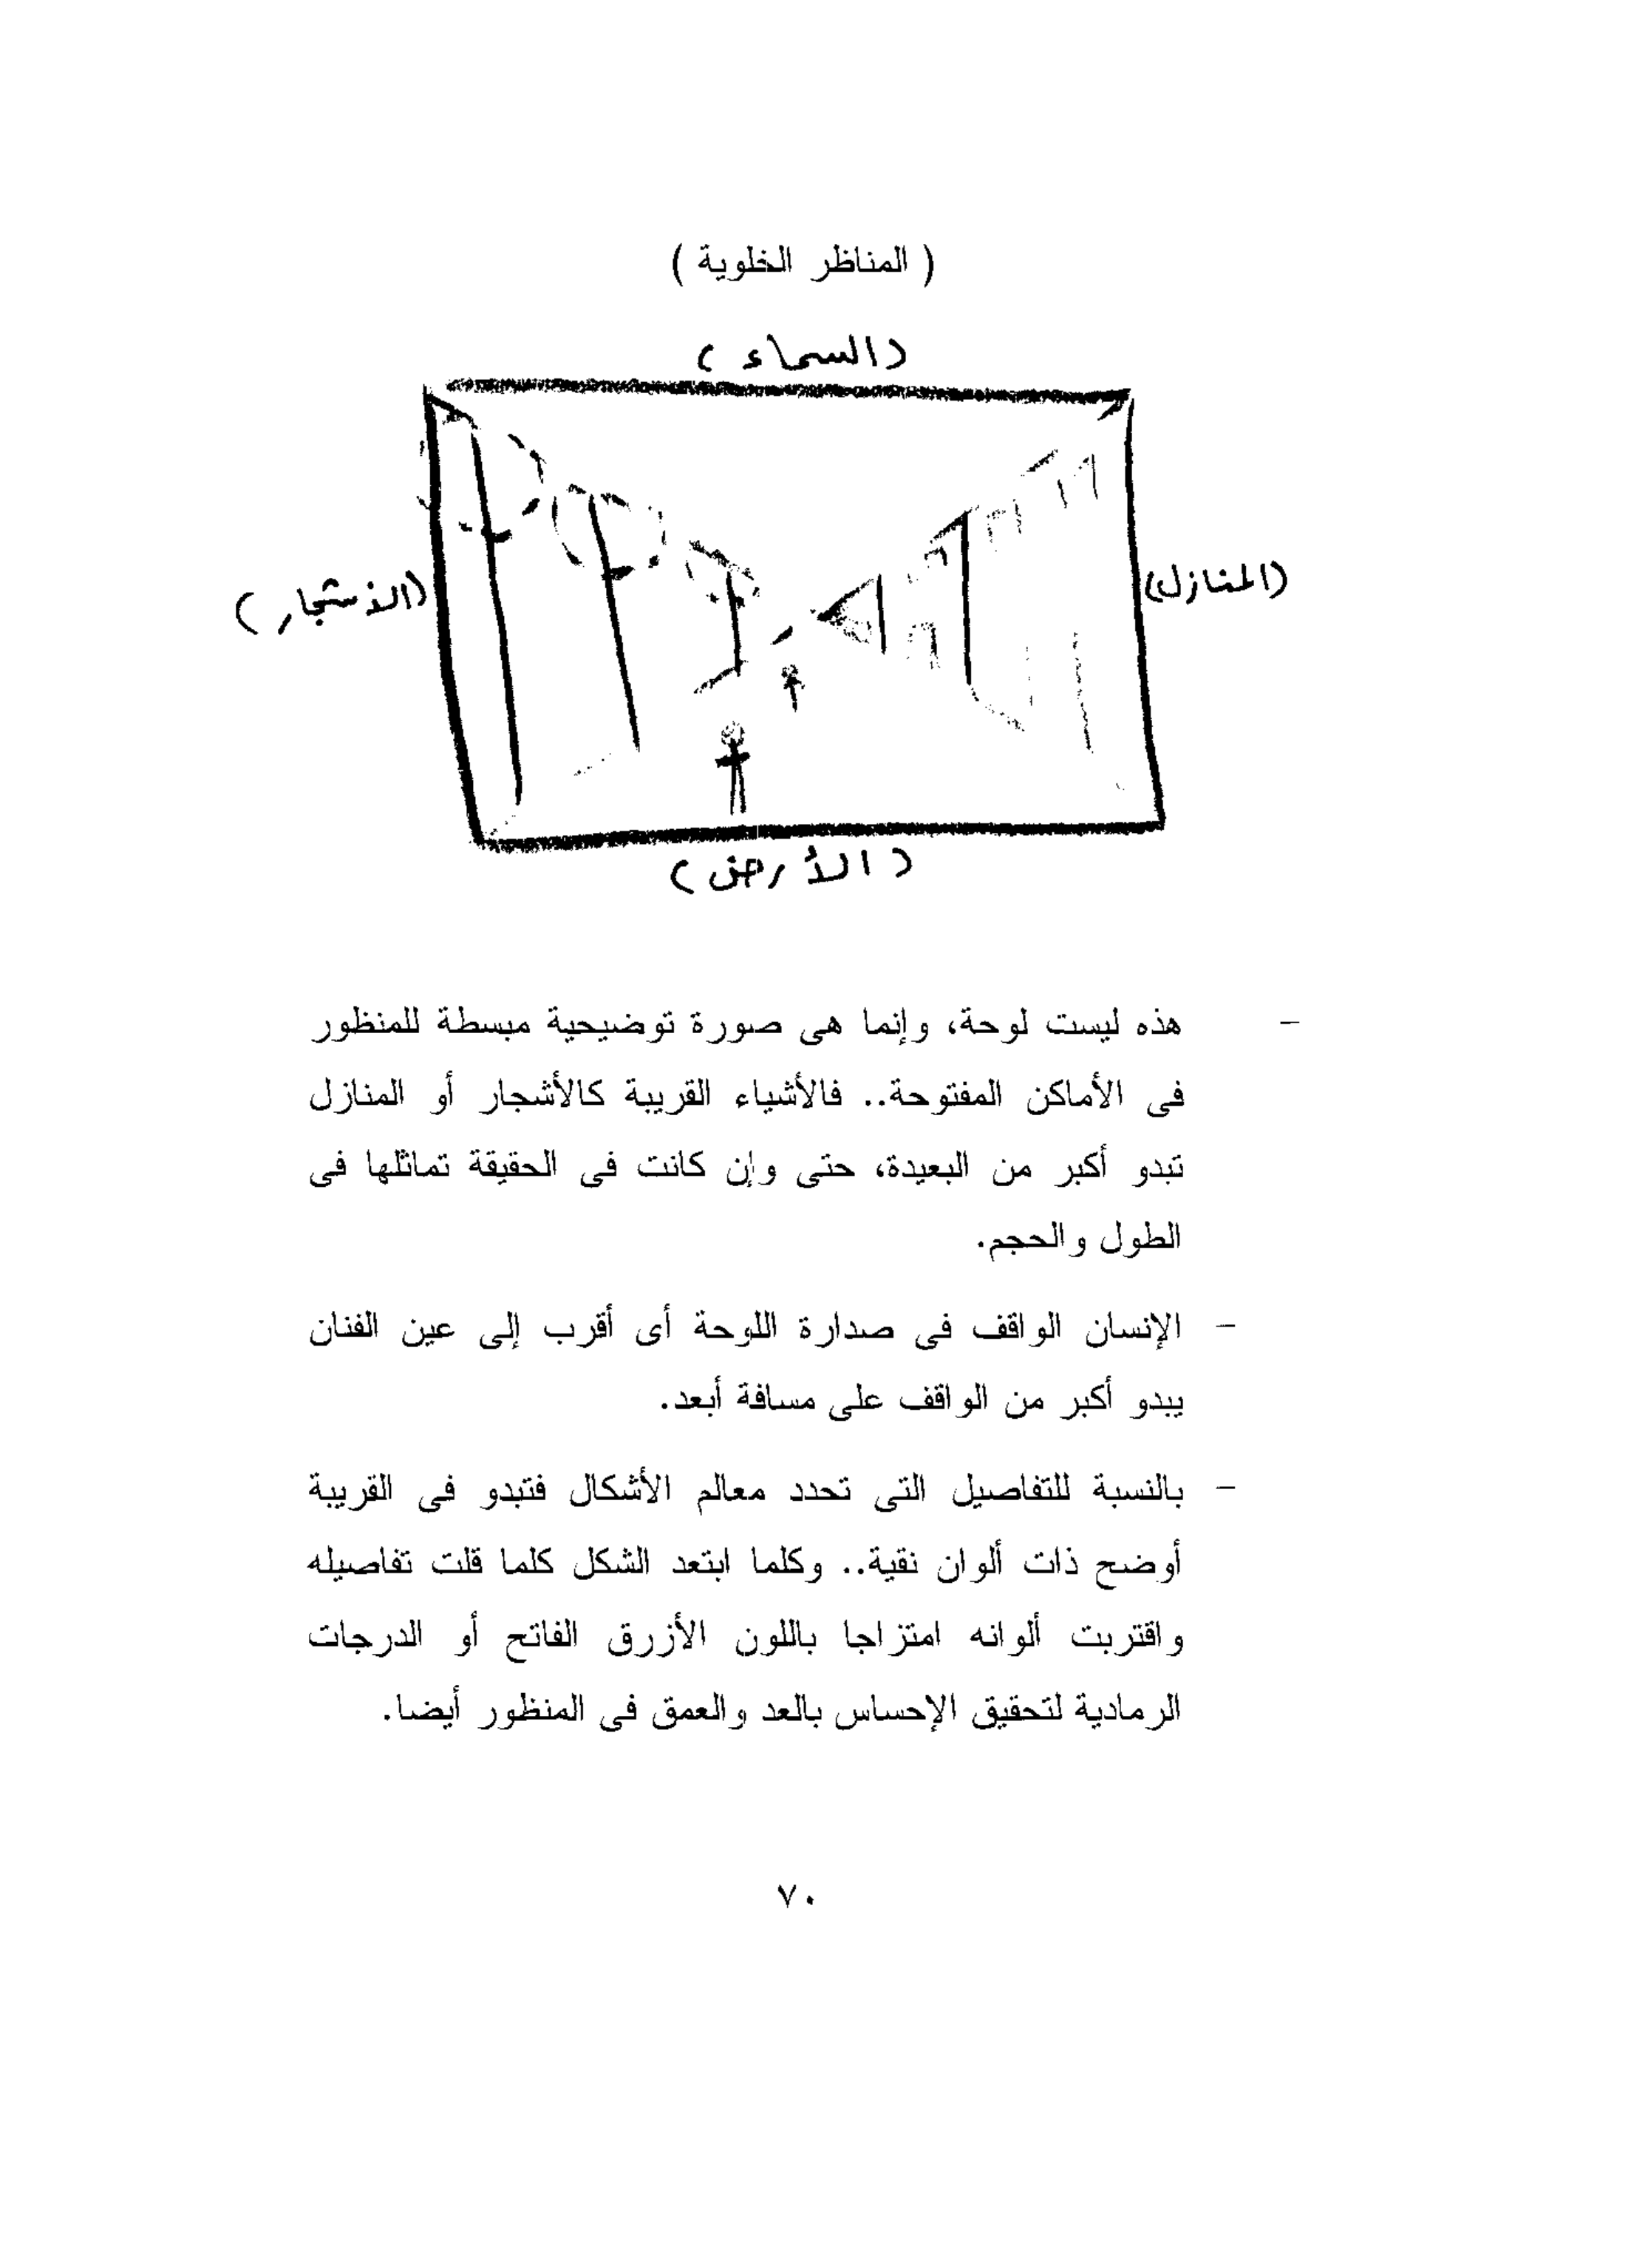 ( المناظر الخلوية )
(السماء )
(المنازل)
(الأشجار )
( الأرض )
- هذه ليست لوحة، وإنما هى صورة توضيحية مبسطة للمنظور
فى الأماكن المفتوحة.. فالأشياء القريبة كالأشجار أو المنازل
تبدو أكبر من البعيدة، حتى وإن كانت فى الحقيقة تماثلها فى
الطول والحجم.
- الإنسان الواقف فى صدارة اللوحة أى أقرب إلى عين الفنان
يبدو أكبر من الواقف على مسافة أبعد.
- بالنسبة للتفاصيل التى تحدد معالم الأشكال فتبدو فى القريبة
أوضح ذات ألوان نقية.. وكلما ابتعد الشكل كلما قلت تفاصيله
واقتربت ألوانه امتزاجا باللون الأزرق الفاتح أو الدرجات
الرمادية لتحقيق الإحساس بالعد والعمق فى المنظور أيضا.
٧٠